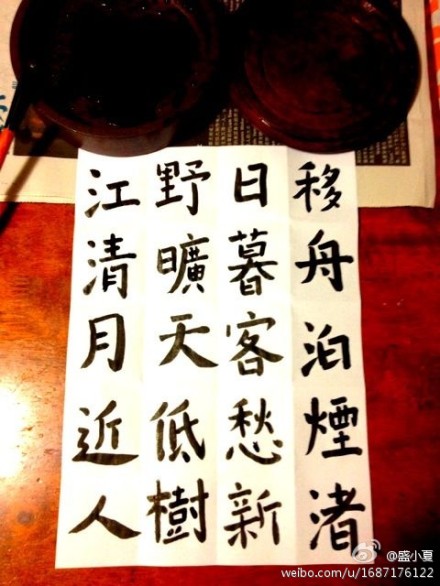 移舟泊煙渚
日暮客愁新
野曠天低樹
江清月近人
@盛小夏
weibo.com/u/1687176122